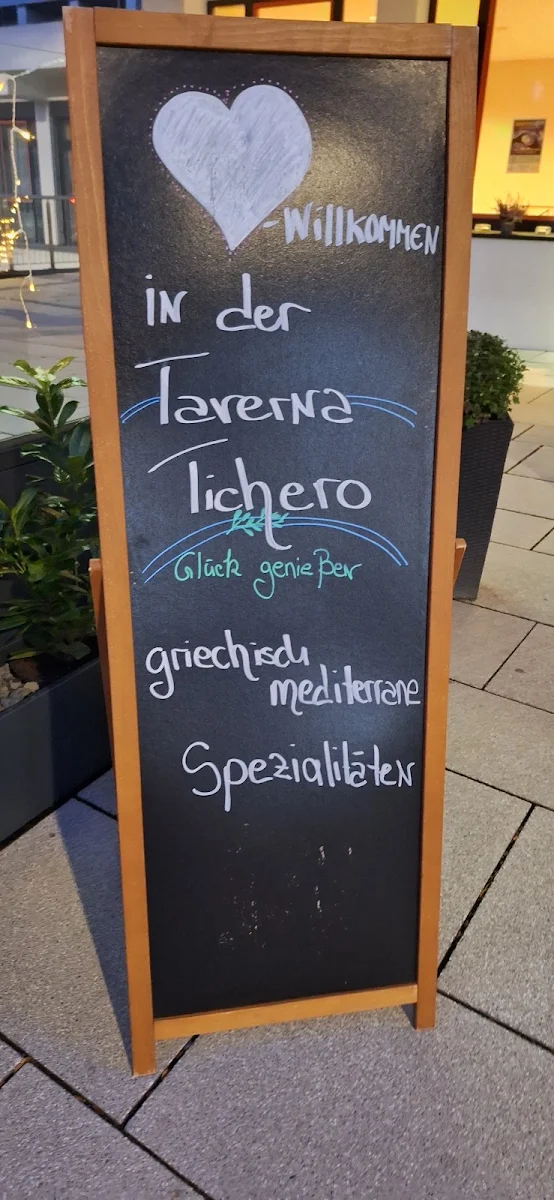 -Willkommen
in der
Taverna
Tichero
Glück genießen
griechisch
mediterrane
Spezialitäten